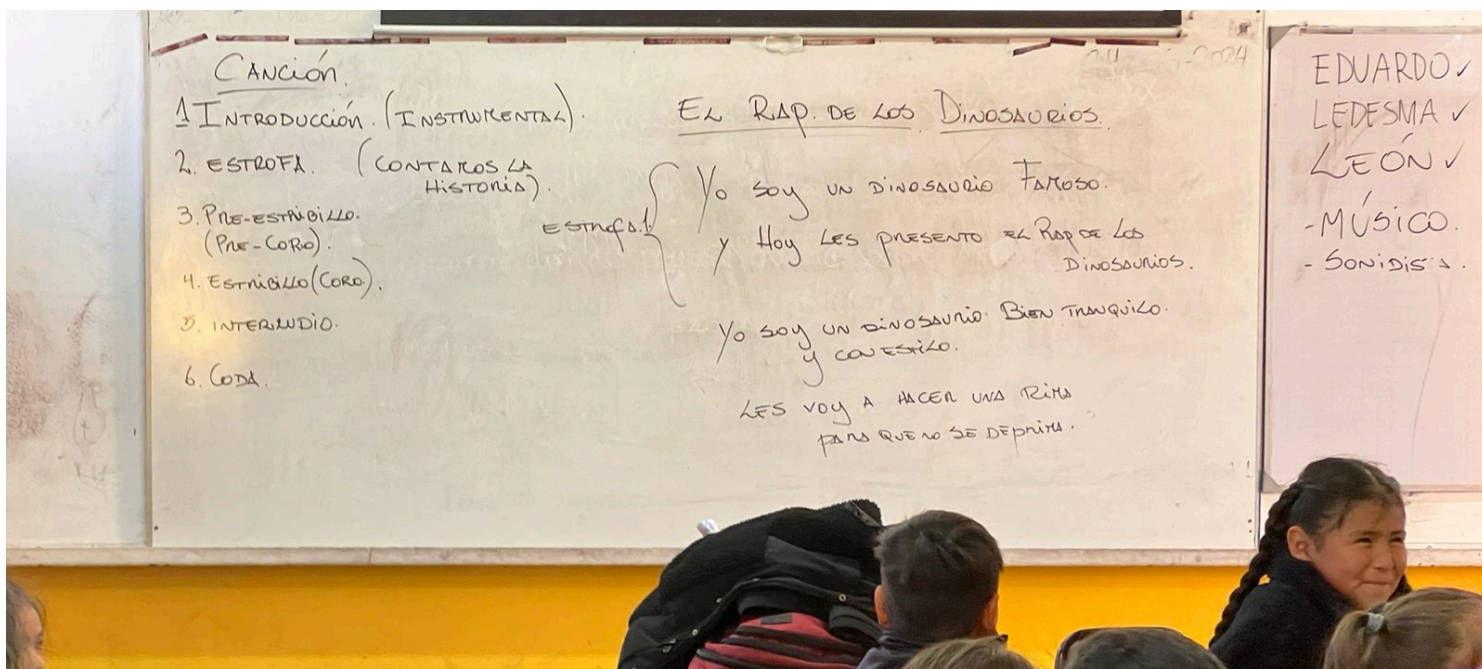 CANCIÓN.
1 INTRODUCCIÓN. (INSTRUMENTAL).
2. ESTROFA. (CONTAMOS LA
HISTORIA).
3. PRE-ESTRIBILLO.
(PRE-CORO).
4. ESTRIBILLO (CORO).
5. INTERLUDIO.
6. CODA.
2024
EL RAP. DE LOS DINOSAURIOS.
ESTROFA.1
Yo soy UN DINOSAURIO FAMOSO.
y Hoy LES PRESENTO EL RAP DE LOS
DINOSAURIOS.
Yo soy UN DINOSAURIO. BIEN TRANQUILO.
y CON ESTILO.
LES VOY A HACER UNA RIMA
PARA QUE NO SE DEPRIMA.
EDUARDO ✓
LEDESMA ✓
LEÓN ✓
-MÚSICO.
- SONIDISTA.